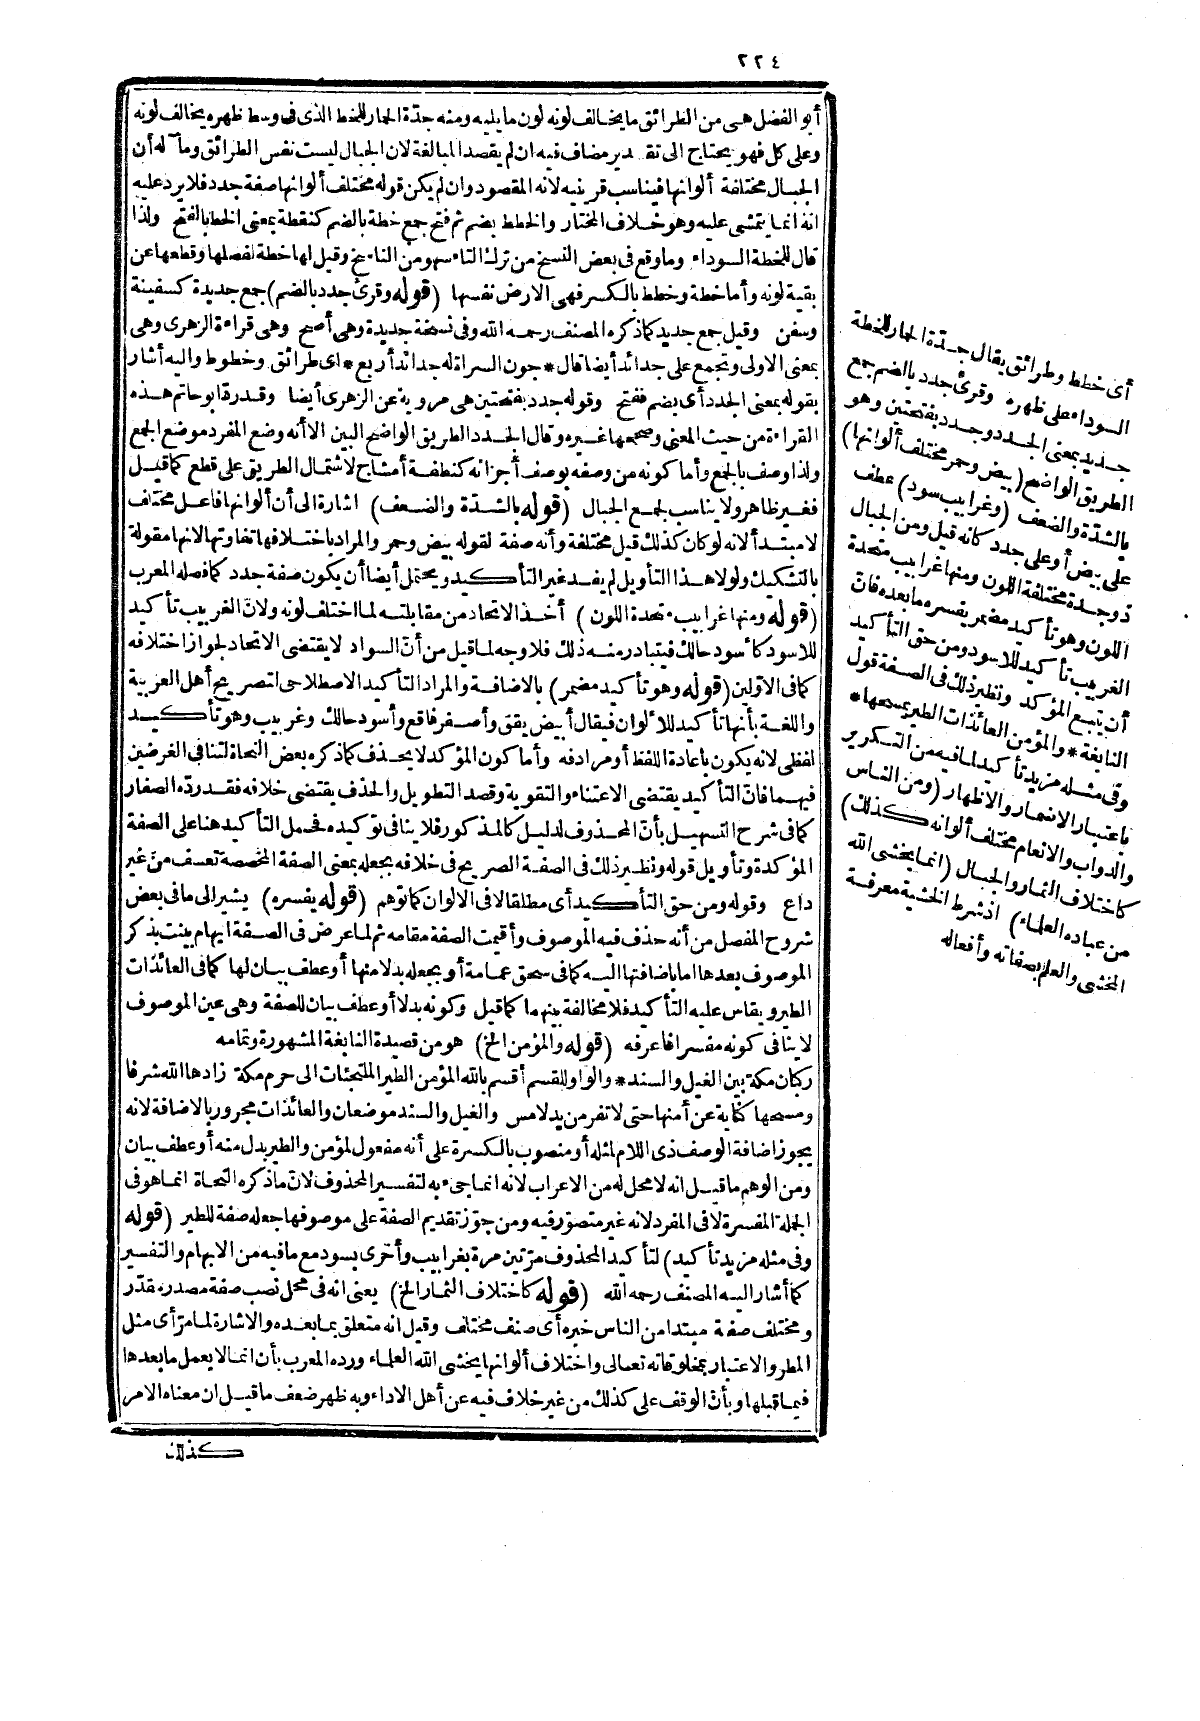 ٢٢٤
أبو الفضل هى من الطرائق ما يخالف لونه لون ما يليه ومنه جدّة الحمار للخط الذى فى وسط ظهره يخالف لونه
وعلى كل فهو يحتاج الى تقدير مضاف فيه ان لم يقصد المبالغة لان الجبال ليست نفس الطرائق ومآله أن
الجبال مختلفة ألوانها فيناسب قرينيه لانه المقصود وان لم يكن قوله مختلف ألوانها صفة جدد فلا يرد عليه
انه انما يتمشى عليه وهو خلاف المختار والخطط بضم ثم فتح جمع خطة بالضم كنقطة بمعنى الخط بالفتح ولذا
قال للخطة السوداء وما وقع فى بعض النسخ من ترك التاء سهو من الناسخ وقيل لها خطة لفصلها وقطعها عن
بقية لونه وأما خطة وخطط بالكسر فهى الارض نفسها (قوله وقرئ جدد بالضم) جمع جديدة كسفينة
وسفن وقيل جمع جديد كما ذكره المصنف رحمه الله وفى نسخة جديدة وهى أصح وهى قراءة الزهرى وهى
بمعنى الاولى وتجمع على جدائد أيضا قال * جون السراة له جدائد أربع * اى طرائق وخطوط واليه أشار
بقوله بمعنى الجدد أى بضم ففتح وقوله جدد بفتحتين هى مروية عن الزهرى أيضا وقد رد أبو حاتم هذه
القراءة من حيث المعنى وصححها غيره وقال الجدد الطريق الواضح البين الا أنه وضع المفرد موضع الجمع
ولذا وصف بالجمع وأما كونه من وصفه بوصف أجزائه كنطفة أمشاج لاشتمال الطريق على قطع كما قيل
فغير ظاهر ولا يناسب لجمع الجبال (قوله بالشدّة والضعف) اشارة الى أن ألوانها فاعل مختلف
لا مبتدأ لانه لو كان كذلك قيل مختلفة وأنه صفة لقوله بيض وحمر والمراد باختلافها تفاوتها لانها مقولة
بالتشكيك ولولا هذا التأويل لم يفد غير التأكيد ويحتمل أيضا أن يكون صفة جدد كما فصله المعرب
(قوله ومنها غرابيب متحدة اللون) أخذ الاتحاد من مقابلته لما اختلف لونه ولانّ الغربيب تأكيد
للاسود كأسود حالك فيتبادر منه ذلك فلا وجه لما قيل من أنّ السواد لا يقتضى الاتحاد لجواز اختلافه
كما فى الاوّلين (قوله وهو تأكيد مضمر) بالاضافة والمراد التأكيد الاصطلاحى لتصريح أهل العربية
واللغة بأنها تأكيد للألوان فيقال أبيض يقق وأصفر فاقع وأسود حالك وغربيب وهو تأكيد
لفظى لانه يكون باعادة اللفظ أو مرادفه وأما كون المؤكد لا يحذف كما ذكره بعض النحاة لتنافى الغرضين
فيهما فانّ التأكيد يقتضى الاعتناء والتقوية وقصد التطويل والحذف يقتضى خلافه فقد ردّه الصفار
كما فى شرح التسهيل بأنّ المحذوف لدليل كالمذكور فلا ينافى توكيده فحمل التأكيد هنا على الصفة
المؤكدة وتأويل قوله ونظير ذلك فى الصفة الصريح فى خلافه بجعله بمعنى الصفة المخصصة تعسف من غير
داع وقوله ومن حق التأكيد أى مطلقا لا فى الالوان كما توهم (قوله يفسره) يشير الى ما فى بعض
شروح المفصل من أنه حذف فيه الموصوف وأقيمت الصفة مقامه ثم لما عرض فى الصفة ايهام بينت بذكر
الموصوف بعدها اما باضافتها اليه كما فى سحق عمامة أو بجعله بدلا منها أو عطف بيان لها كما فى العائذات
الطير ويقاس عليه التأكيد فلا مخالفة بينهما كما قيل وكونه بدلا أو عطف بيان للصفة وهى عين الموصوف
لا ينافى كونه مفسرا فاعرفه (قوله والمؤمن الخ) هو من قصيدة النابغة المشهورة وتمامه
ركبان مكة بين الغيل والسند * والواو للقسم أقسم بالله المؤمن الطير الملتجئات الى حرم مكة زادها الله شرفا
ومسحها كناية عن أمنها حتى لا تفر من يد لامس والغيل والسند موضعان والعائذات مجرور بالاضافة لانه
يجوز اضافة الوصف ذى اللام لمثله أو منصوب بالكسرة على أنه مفعول لمؤمن والطير بدل منه أو عطف بيان
ومن الوهم ما قيل انه لا محل له من الاعراب لانه انما جىء به لتفسير المحذوف لانّ ما ذكره النحاة انما هو فى
الجملة المفسرة لا فى المفرد لانه غير متصوّر فيه ومن جوّز تقديم الصفة على موصوفها جعله صفة للطير (قوله
وفى مثله مزيد تأكيد) لتأكيد المحذوف مرّتين مرة بغرابيب وأخرى بسود مع ما فيه من الابهام والتفسير
كما أشار اليه المصنف رحمه الله (قوله كاختلاف الثمار الخ) يعنى انه فى محل نصب صفة مصدر مقدّر
ومختلف صفة مبتدا من الناس خبره أى صنف مختلف وقيل انه متعلق بما بعده والاشارة لما مرّ أى مثل
المطر والاعتبار بمخلوقاته تعالى واختلاف ألوانها يخشى الله العلماء ورده المعرب بأن انما لا يعمل ما بعدها
فيما قبلها وبأنّ الوقف على كذلك من غير خلاف فيه عن أهل الاداء وبه ظهر ضعف ما قيل ان معناه الامر
كذلك
أى خطط وطرائق يقال جدّة الحمار للخطة
السوداء على ظهره وقرئ جدد بالضم جمع
جديد بمعنى الجدد وجدد بفتحتين وهو
الطريق الواضح (بيض وحمر مختلف ألوانها)
بالشدّة والضعف (وغرابيب سود) عطف
على بيض أو على جدد كانه قيل ومن الجبال
ذو جدد مختلفة اللون ومنها غرابيب متحدة
اللون وهو تأكيد مضمر يفسره ما بعده فانّ
الغربيب تأكيد للاسود ومن حق التأكيد
أن يتبع المؤكد ونظير ذلك فى الصفة قول
النابغة * والمؤمن العائذات الطير يمسحها *
وفى مثله مزيد تأكيد لما فيه من التكرير
باعتبار الاضمار والاظهار (ومن الناس
والدواب والانعام مختلف ألوانه كذلك)
كاختلاف الثمار والجبال (انما يخشى الله
من عباده العلماء) اذ شرط الخشية معرفة
المخشى والعلم بصفاته وأفعاله